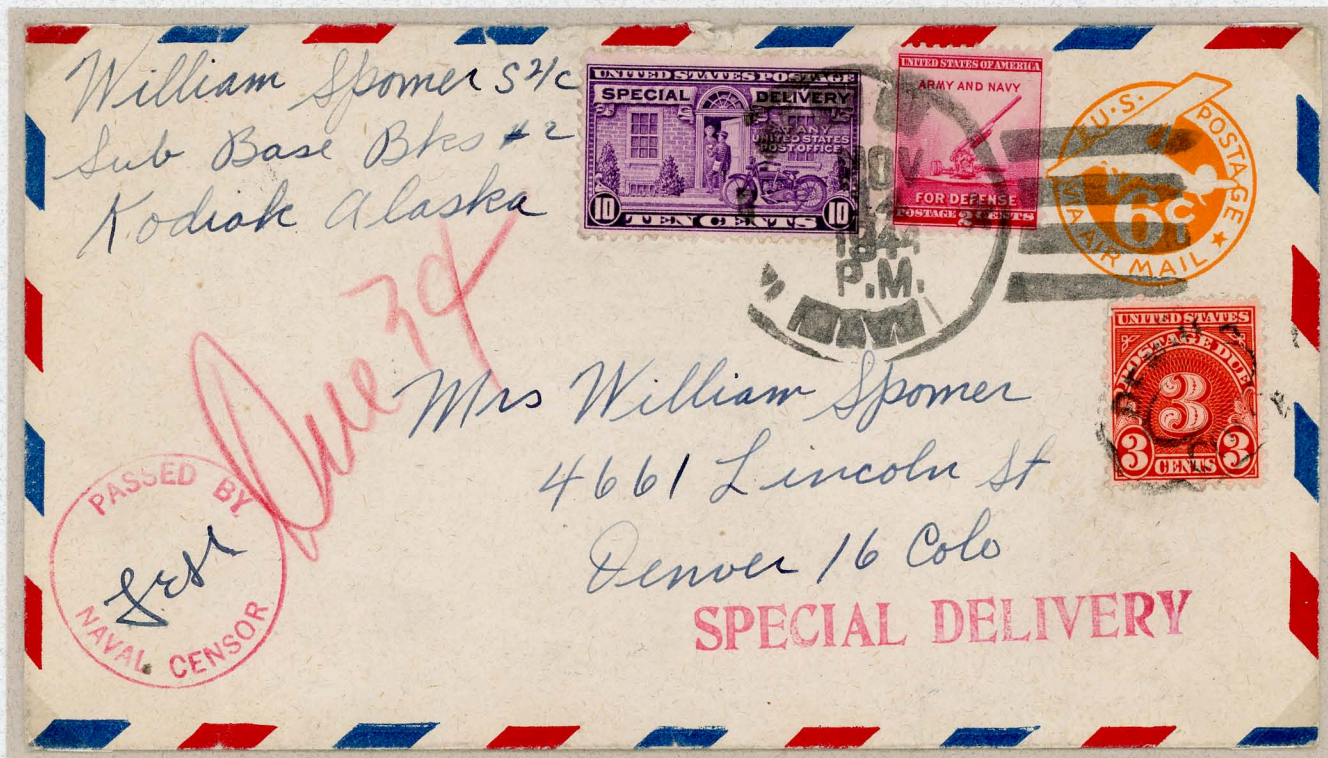 William Spomer S 2/c
Sub Base Bks #2
Kodiak Alaska
UNITED STATES POSTAGE
SPECIAL DELIVERY
AT ANY
UNITED STATES
POST OFFICE
10 TEN CENTS 10
UNITED STATES OF AMERICA
ARMY AND NAVY
FOR DEFENSE
POSTAGE 2 CENTS
U.S. POSTAGE
6c
VIA AIR MAIL
NOV
1944
P.M.
Due 3¢
UNITED STATES
POSTAGE DUE
3
3 CENTS 3
Mrs William Spomer
4661 Lincoln St
Denver 16 Colo
PASSED BY
NAVAL CENSOR
SPECIAL DELIVERY